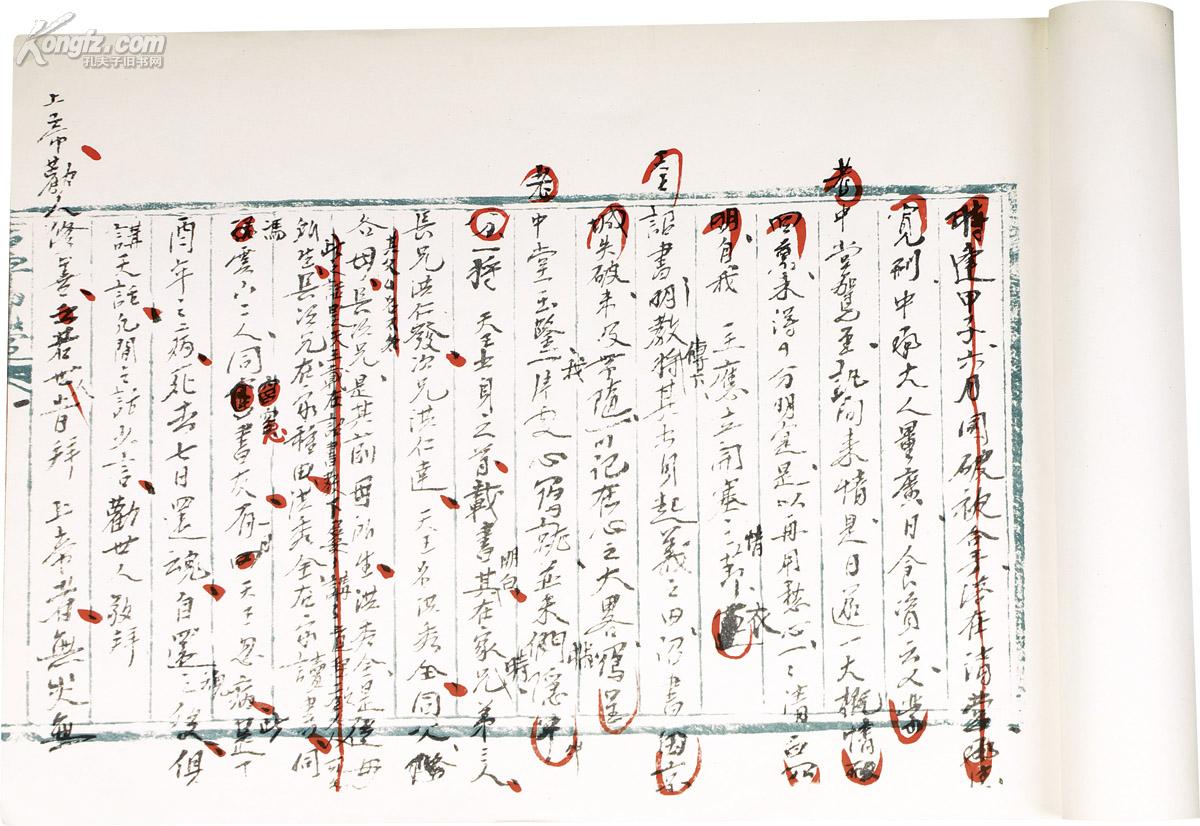 Kongfz.com
孔夫子旧书网
時逢甲子六月國破被拿落在清營
寬刑中丞大人量廣日食資云蒙
老中堂駕至訊問來情是日逐一大概情形
回稟未得十分明實是以再用愁心一一清
明自我 主應立開基之情節 衣
詔書明教傳下將其出身起義之由詔書因京
城失破未及帶隨可記在心之大畧寫呈
老中堂玉鑒我一片虔心寫就並無隱
一將 天王出身之首載書明白其在家時兄弟三人
長兄洪仁發次兄洪仁達 天王名洪秀全同父各
各母長次兄是其前母所生洪秀全是後母
所生長次兄在家種田洪秀全在家讀書同
馮雲山二人同窗書友有一日天王忽病此是丁
酉年之病死去七日還魂自還魂之後俱
講天話凡間之話少言勸世人敬拜
上帝勸人修善云若世人肯拜 上帝者無災無